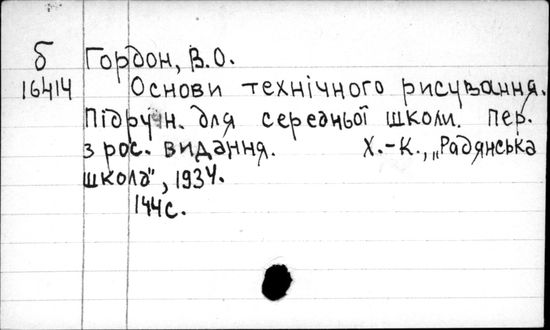 б Гордон, В.О.
16414 Основи технічного рисування.
Підручн. для середньої школи. Пер.
з рос. видання. Х.-К., „Радянська
школа", 1934.
144 с.